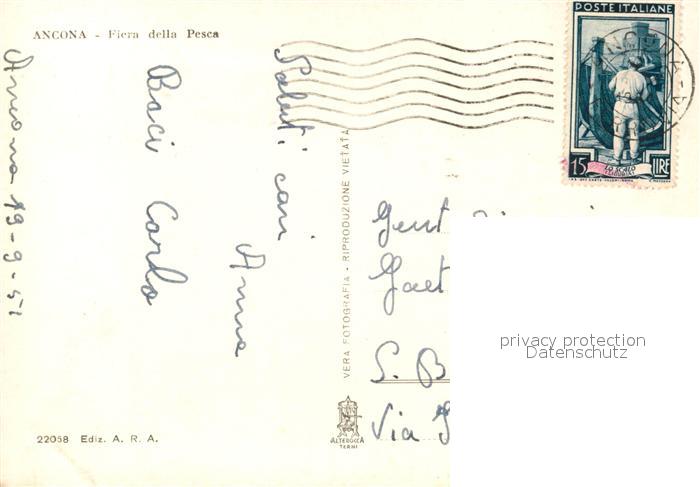 ANCONA - Fiera della Pesca
Ancona 19-9-51
Saluti cari
Anna
Baci Carlo
VERA FOTOGRAFIA - RIPRODUZIONE VIETATA
22058 Ediz. A. R. A.
ALTEROCCA
TERNI
POSTE ITALIANE
15 LIRE
LO SCALO
Gent
Gaet
S. B
Via
privacy protection
Datenschutz